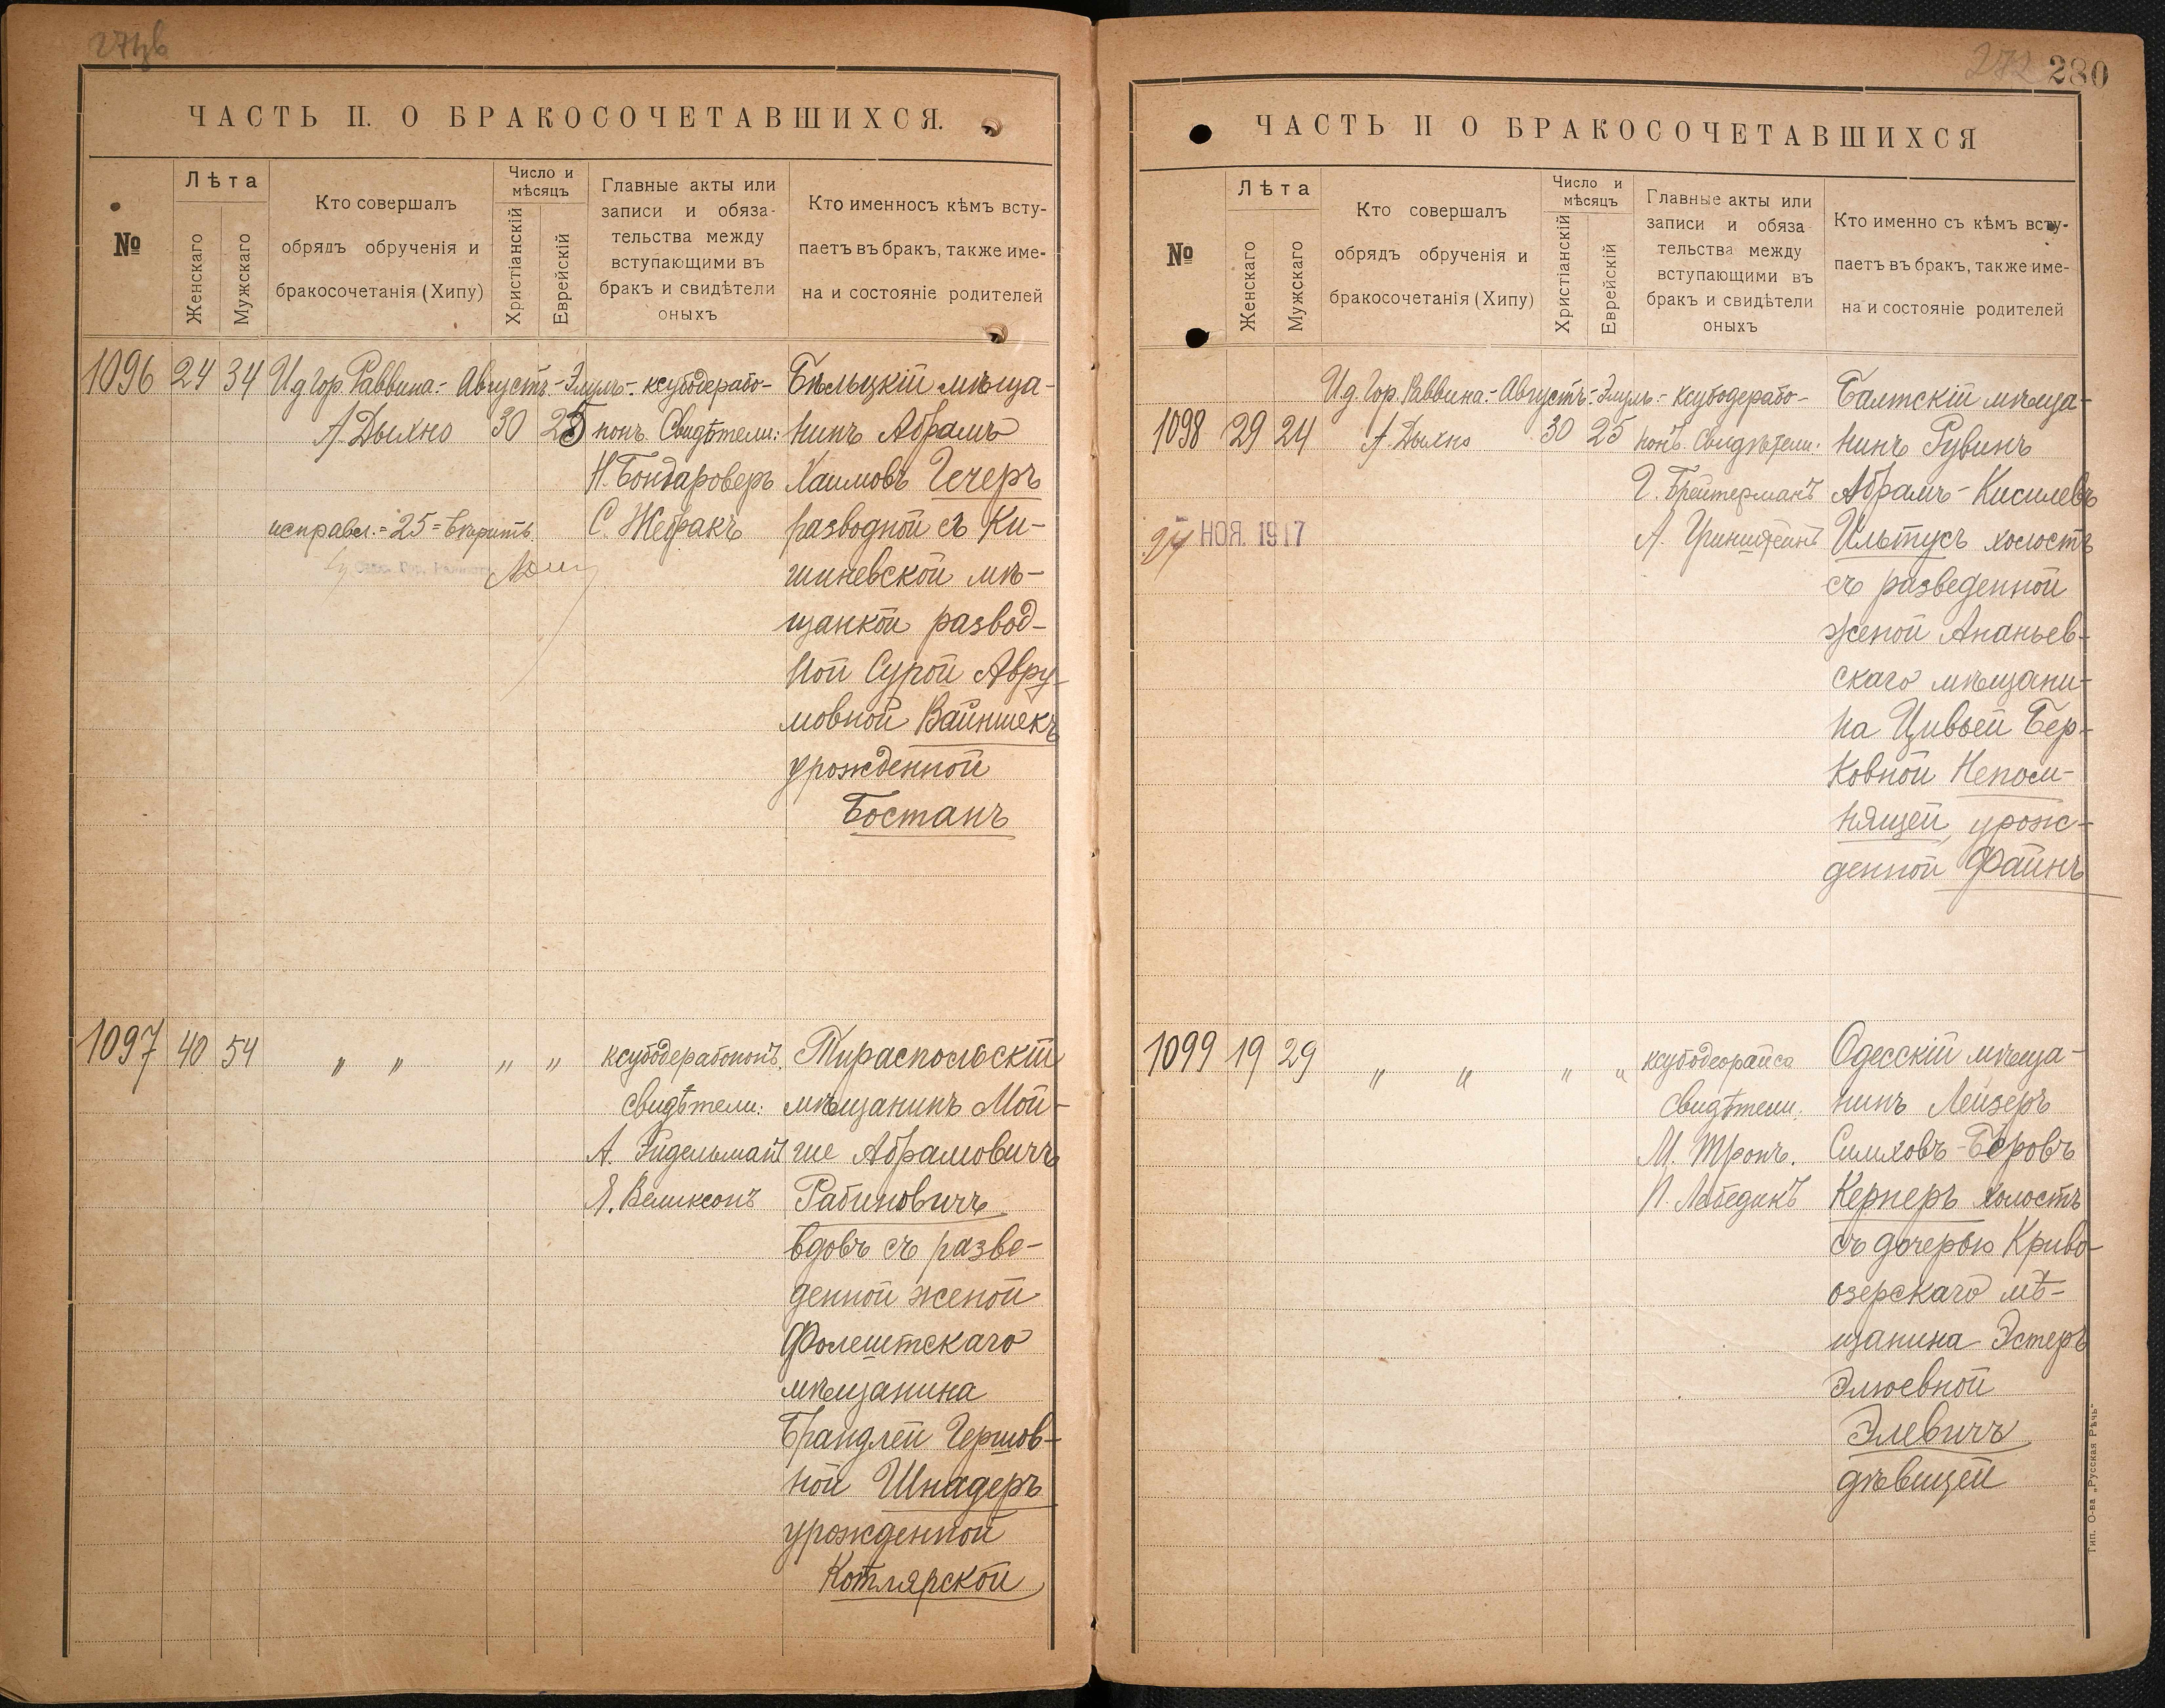 ЧАСТЬ II. О БРАКОСОЧЕТАВШИХСЯ.
№
Лѣта
Женскаго
Мужскаго
Кто совершалъ
обрядъ обрученія и
бракосочетанія (Хипу)
Число и
мѣсяцъ
Христіанскій
Еврейскій
Главные акты или
записи и обяза-
тельства между
вступающими въ
бракъ и свидѣтели
оныхъ
Кто именносъ кѣмъ всту-
паетъ въ бракъ, также име-
на и состояніе родителей
1096 24 34 И д Гор. Раввина:- Августъ.- Элулъ.- ксубодерабо-
А. Дыхно 30 25 нонъ. Свидѣтели:
Н. Бондароверъ
исправл. = 25 = вѣрить. С. Жебракъ
Бѣльцкій мѣща-
нинъ Абрамъ
Хаимовъ Гечеръ
разводной съ Ки-
шиневской мѣ-
щанкой развод-
ной Сурой Авру-
мовной Вайншекъ
урожденной
Бостанъ
1097 40 54 „ „ „ „ ксубодерабононъ.
Свидѣтели:
А. Эйдельманъ
Я. Великсонъ
Тираспольскій
мѣщанинъ Мой-
ше Абрамовичъ
Рабиновичъ
вдовъ съ разве-
денной женой
Фолештскаго
мѣщанина
Брандлей Гершов-
ной Шнадеръ
урожденной
Котлярской
272 280
ЧАСТЬ II О БРАКОСОЧЕТАВШИХСЯ
№
Лѣта
Женскаго
Мужскаго
Кто совершалъ
обрядъ обрученія и
бракосочетанія (Хипу)
Число и
мѣсяцъ
Христіанскій
Еврейскій
Главные акты или
записи и обяза-
тельства между
вступающими въ
бракъ и свидѣтели
оныхъ
Кто именно съ кѣмъ всту-
паетъ въ бракъ, также име-
на и состояніе родителей
И д. Гор. Раввина:- Августъ:- Элулъ:- ксубодерабо-
1098 29 24 А. Дыхно 30 25 нонъ. Свидѣтели:
Г. Брейтерманъ
27 НОЯ. 1917 А. Гринштейнъ
Балтскій мѣща-
нинъ Рувинъ
Абрамъ-Кисилевъ
Ильтусъ холостъ
съ разведенной
женой Ананьев-
скаго мѣщани-
на Цивьей Бер-
ковной Непом-
нящей, урож-
денной Файнъ
1099 19 29 „ „ „ „ ксубодеорайса
Свидѣтели:
М. Тронъ.
П. Лебединъ
Одесскій мѣща-
нинъ Лейзеръ
Симховъ-Беровъ
Кернеръ холостъ
съ дочерью Криво-
озерскаго мѣ-
щанина Эстеръ
Элюевной
Элевичъ
дѣвицей
Тип. О-ва „Русская Рѣчь"